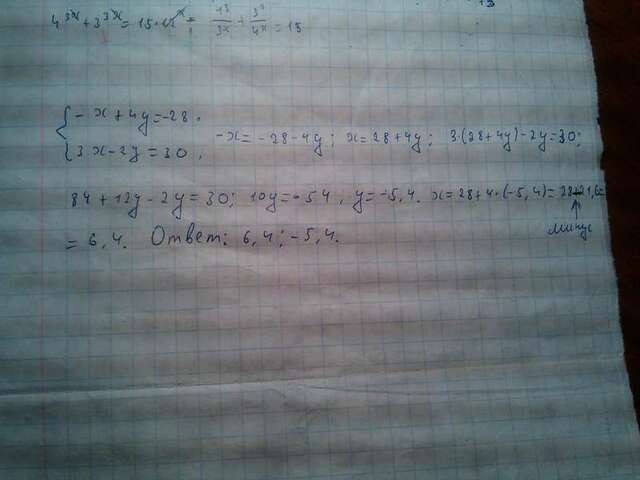 4^3x + 3^3x = 15 · 12^x ;
{ - x + 4y = -28 .
{ 3x - 2y = 30 ; -x = -28 - 4y ; x = 28 + 4y ; 3·(28 + 4y) - 2y = 30 ;
84 + 12y - 2y = 30 ; 10y = -54 , y = -5,4 . x = 28 + 4·(-5,4) = 28 - 21,6 =
минус
= 6,4 . Ответ: 6,4 ; -5,4 .